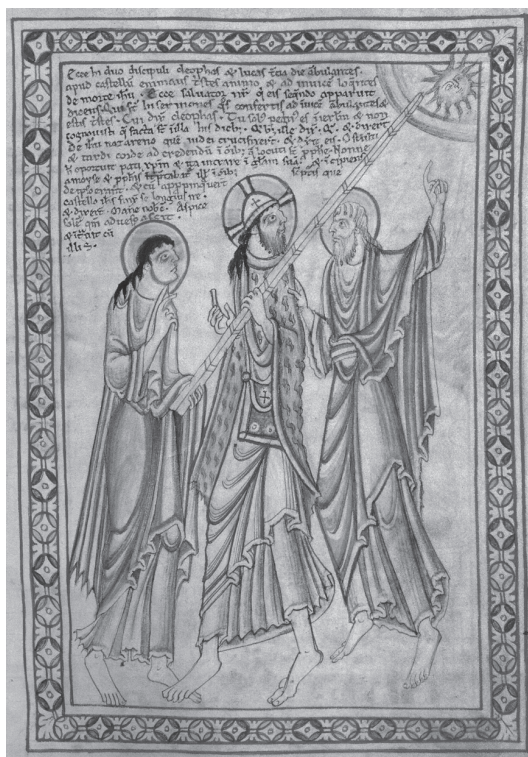 Ecce hi duo discipuli cleophas & lucas t̄cia die ābulantes
apud castellū emmaus t̄stes animo & ad invicē loq̄ntes
de morte ihu . Ecce salvator nr̄ q̄ eis secundo apparuit
dicens Qui st̄ hi sermones q̄s confertis ad īvicē ābulantes &
estis t̄stes . Cui dix̄ cleophas . Tu sol' pegn' es ī ierłm & non
cognovisti q̄ facta st̄ ī illa his dieb; . ille dix̄ . Q̄ . & dixer̄t
de ihu nazareno quē iudei crucifixer̄t . & dix̄ eis . O stulti
& tardi corde ad credendū ī oib; q̄ locuti st̄ pphe . Nonne
oportuit pati xp̄m & ita intrare ī głam suā . & īcipiens
a moyse & pphis ill' ī oib; sc̄ptis que
de ipso erant . & cū appinquar̄t
castello finx̄ se longius ire
& dixer̄t . Mane nobc̄ . Aspice
sole qm̄ advespascit .
& ītravit cū
illis .